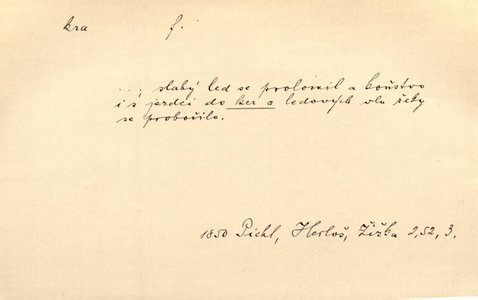 kra f.
...; slabý led se prolomil a koňstvo
i s jezdci do ker a ledových vln řeky
se probořilo.
1850 Pichl, Herloš, Žižka 2,52, 3.